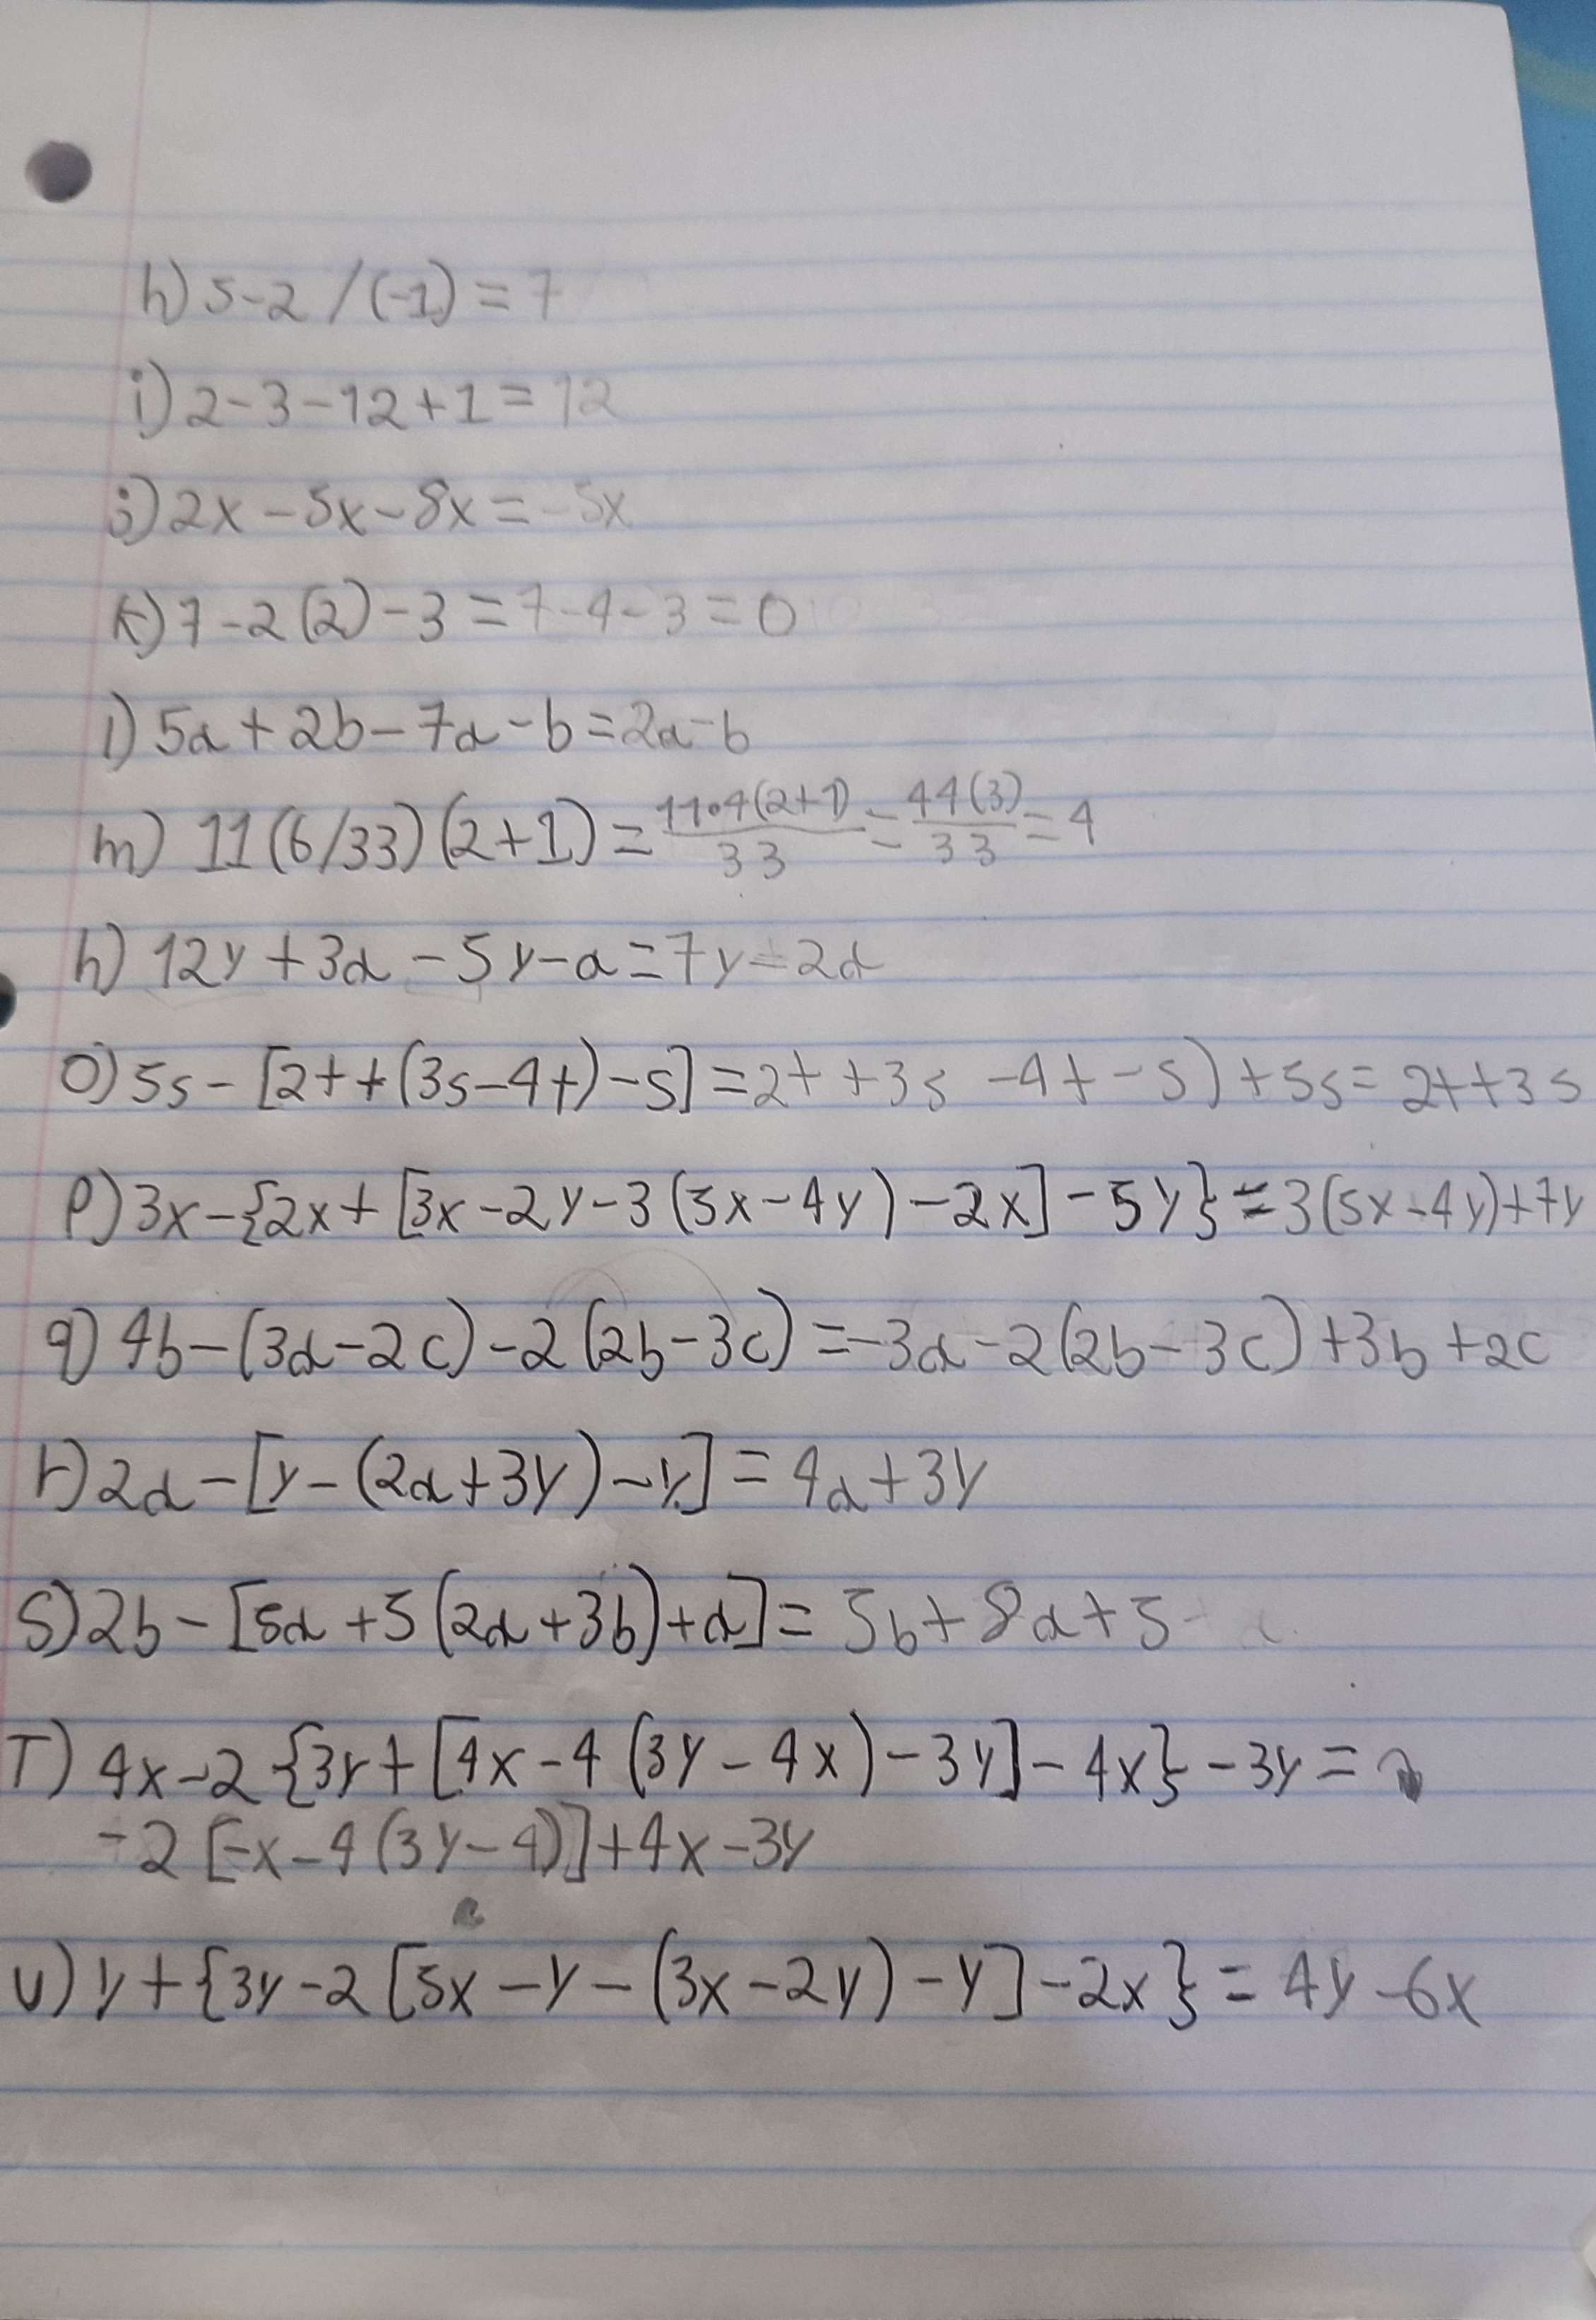 h) 5-2 /(-1) = 7
i) 2-3-12+1 = 12
j) 2x-5x-8x = -5x
k) 7-2(2)-3 = 7-4-3 = 0
l) 5a+2b-7a-b = 2a-b
m) 11(6/33)(2+1) = 11•4(2+1)/33 = 44(3)/33 = 4
n) 12y+3a-5y-a = 7y+2a
o) 5s-[2t+(3s-4t)-s] = 2t+3s-4t-s)+5s = 2t+3s
p) 3x-{2x+[3x-2y-3(5x-4y)-2x]-5y} = 3(5x-4y)+7y
q) 4b-(3a-2c)-2(2b-3c) = -3a-2(2b-3c)+3b+2c
r) 2a-[y-(2a+3y)-y] = 4a+3y
s) 2b-[5a+5(2a+3b)+a] = 5b+8a+5
T) 4x-2{3y+[4x-4(3y-4x)-3y]-4x}-3y =
-2[-x-4(3y-4)]+4x-3y
U) y+{3y-2[5x-y-(3x-2y)-y]-2x} = 4y-6x